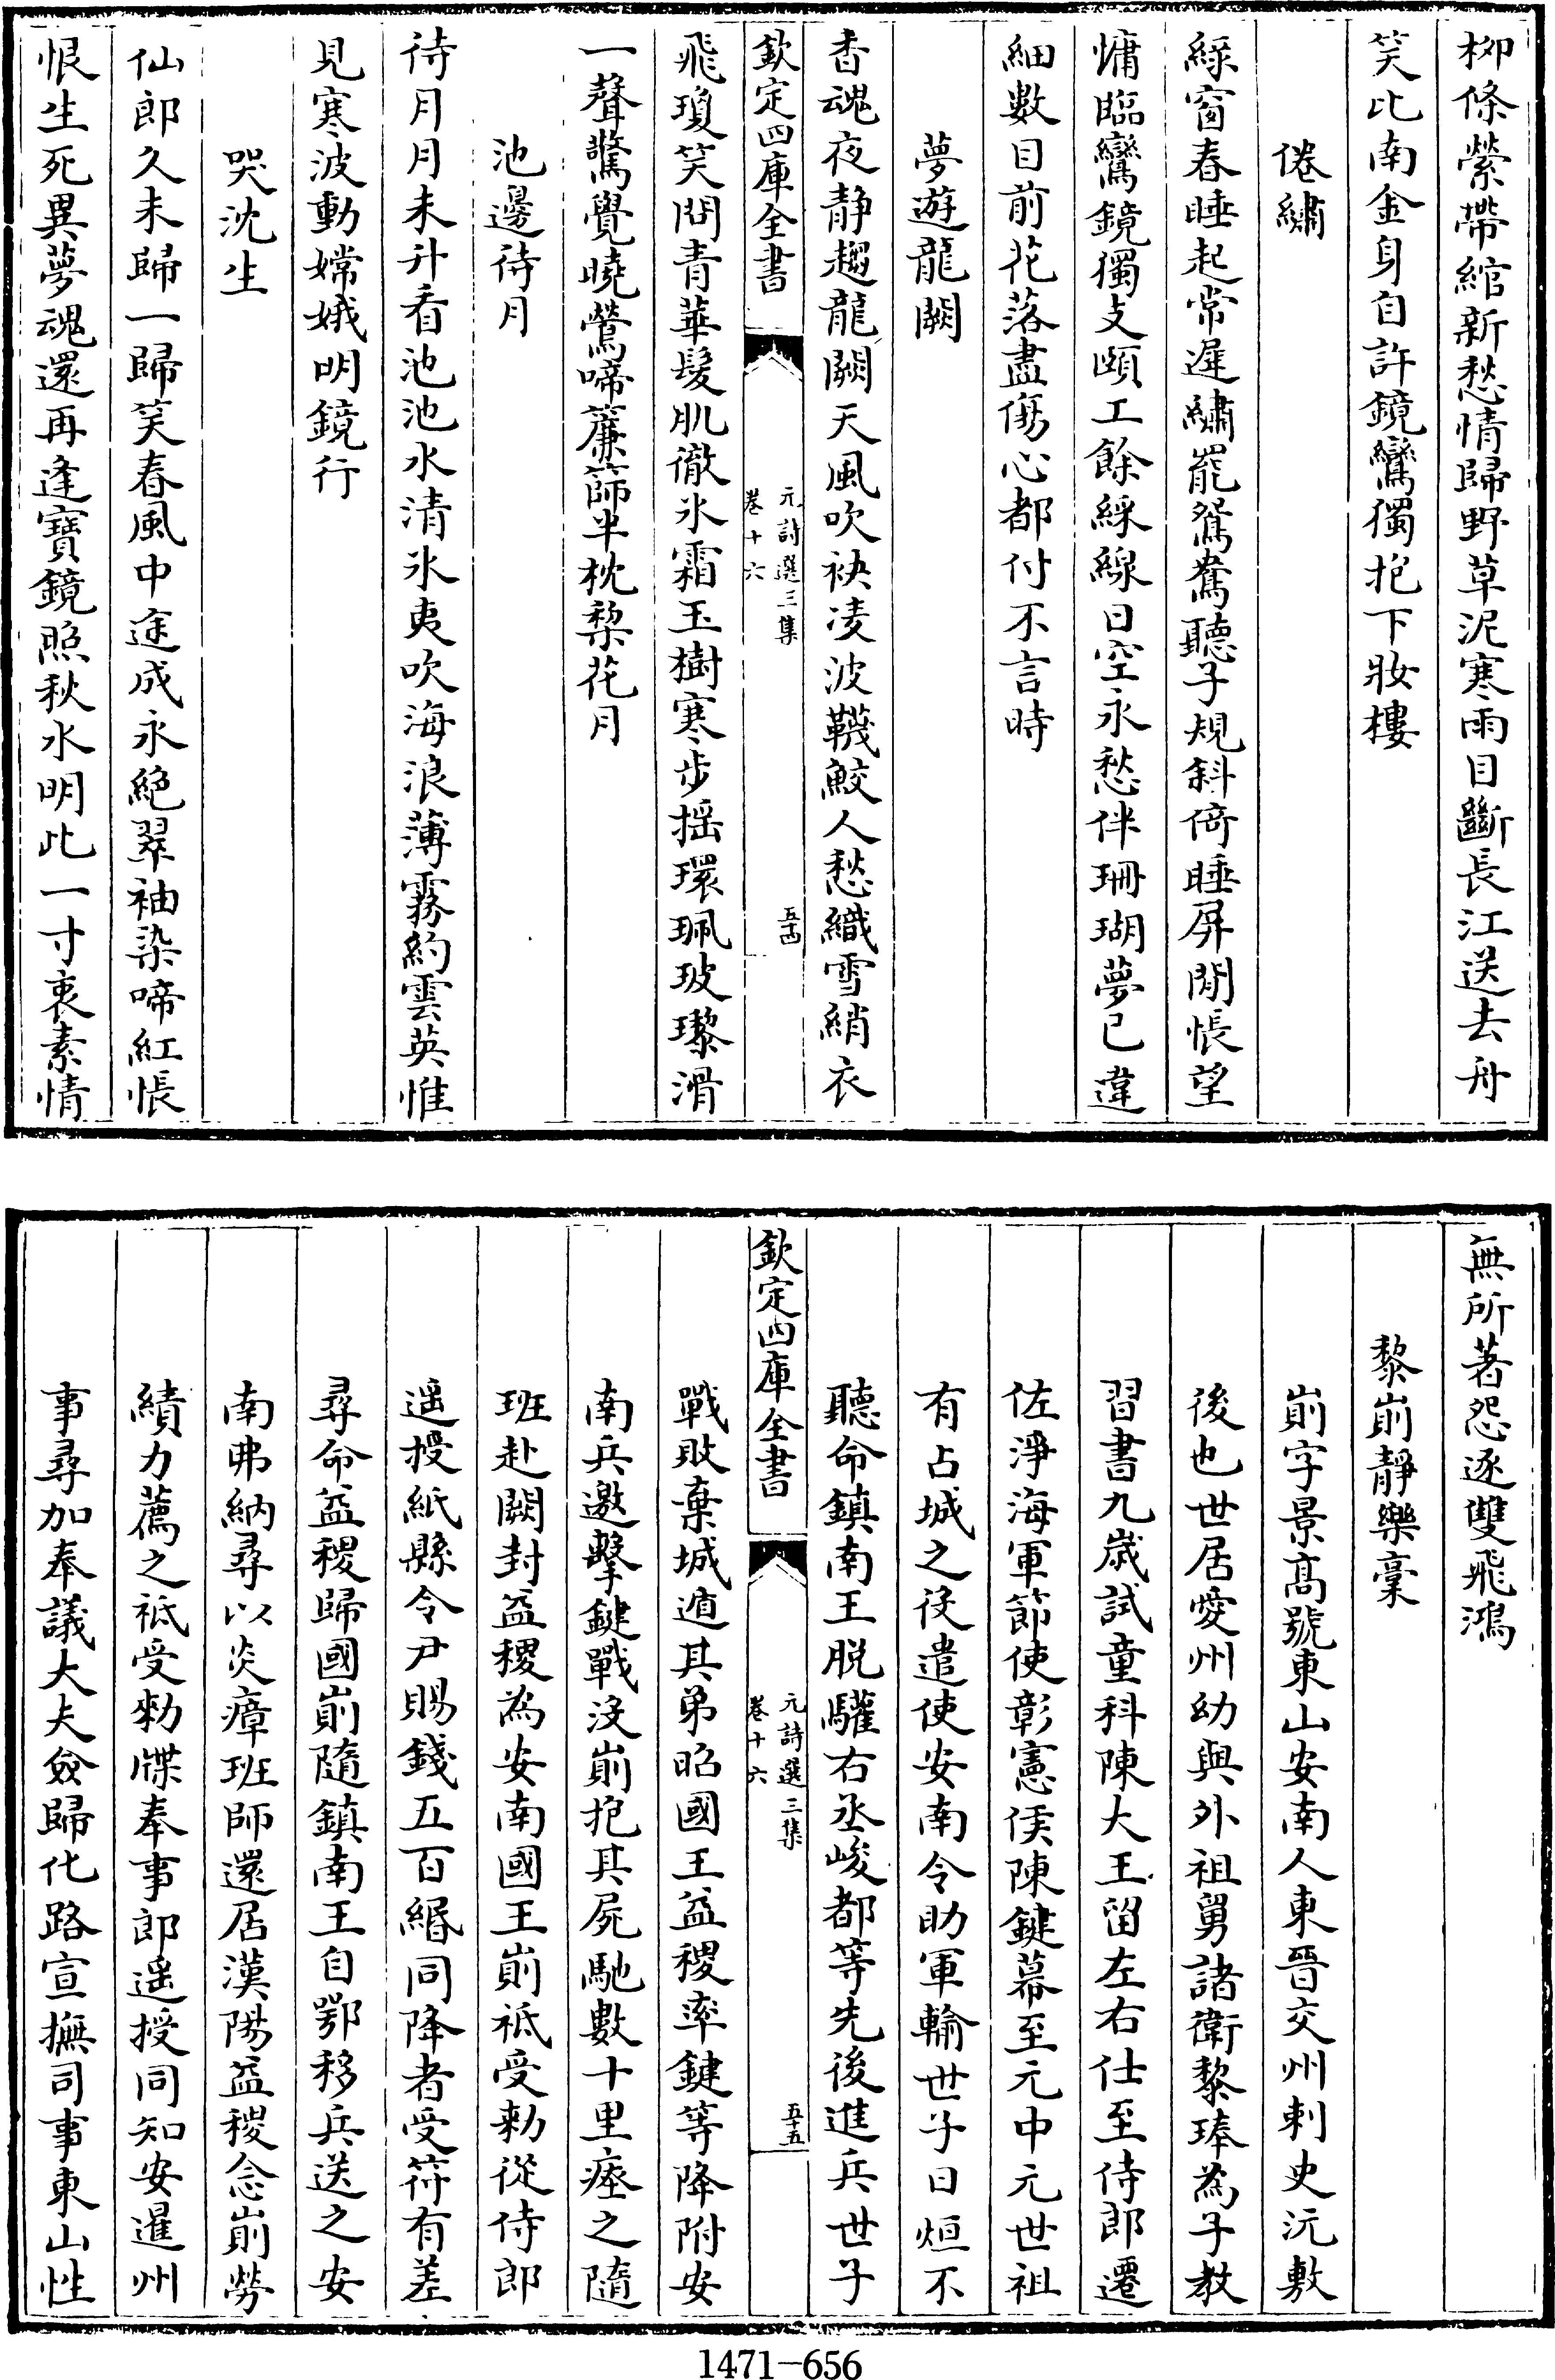 柳條縈帶綰新愁情歸野草泥寒雨目斷長江送去舟
笑比南金身自許鏡鸞獨抱下妝樓
倦繡
綠窗春睡起常遲繡罷鴛鴦聽子規斜倚睡屏閒悵望
慵臨鸞鏡獨支頤工餘綵線日空永愁伴珊瑚夢已違
細數目前花落盡傷心都付不言時
夢遊龍闕
香魂夜静趨龍闕天風吹袂凌波韈鮫人愁織雪綃衣
欽定四庫全書
元詩選三集
卷十六
五十四
飛瓊笑問青華髮肌徹氷霜玉樹寒步摇環珮玻瓈滑
一聲驚覺曉鶯啼簾篩半枕棃花月
池邊待月
待月月未升看池池水清氷夷吹海浪薄霧約雲英惟
見寒波動嫦娥明鏡行
哭沈生
仙郎久未歸一歸笑春風中途成永絶翠袖染啼紅悵
恨生死異夢魂還再逢寶鏡照秋水明此一寸衷素情
無所著怨逐雙飛鴻
黎崱靜樂稾
崱字景高號東山安南人東晉交州刺史沅敷
後也世居愛州幼與外祖舅諸衛黎琫為子教
習書九歲試童科陳大王留左右仕至侍郎遷
佐淨海軍節使彰憲侯陳鍵幕至元中元世祖
有占城之役遣使安南令助軍輸世子日烜不
聽命鎮南王脱驩右丞峻都等先後進兵世子
欽定四庫全書
元詩選三集
卷十六
五十五
戰敗棄城遁其弟昭國王益稷率鍵等降附安
南兵邀擊鍵戰沒崱抱其屍馳數十里瘞之隨
班赴闕封益稷為安南國王崱祗受勅從侍郎
遥授紙縣令尹賜錢五百緡同降者受符有差
尋命益稷歸國崱隨鎮南王自鄂移兵送之安
南弗納尋以炎瘴班師還居漢陽益稷念崱勞
績力薦之祗受勅牒奉事郎遥授同知安暹州
事尋加奉議大夫僉歸化路宣撫司事東山性
1471—656